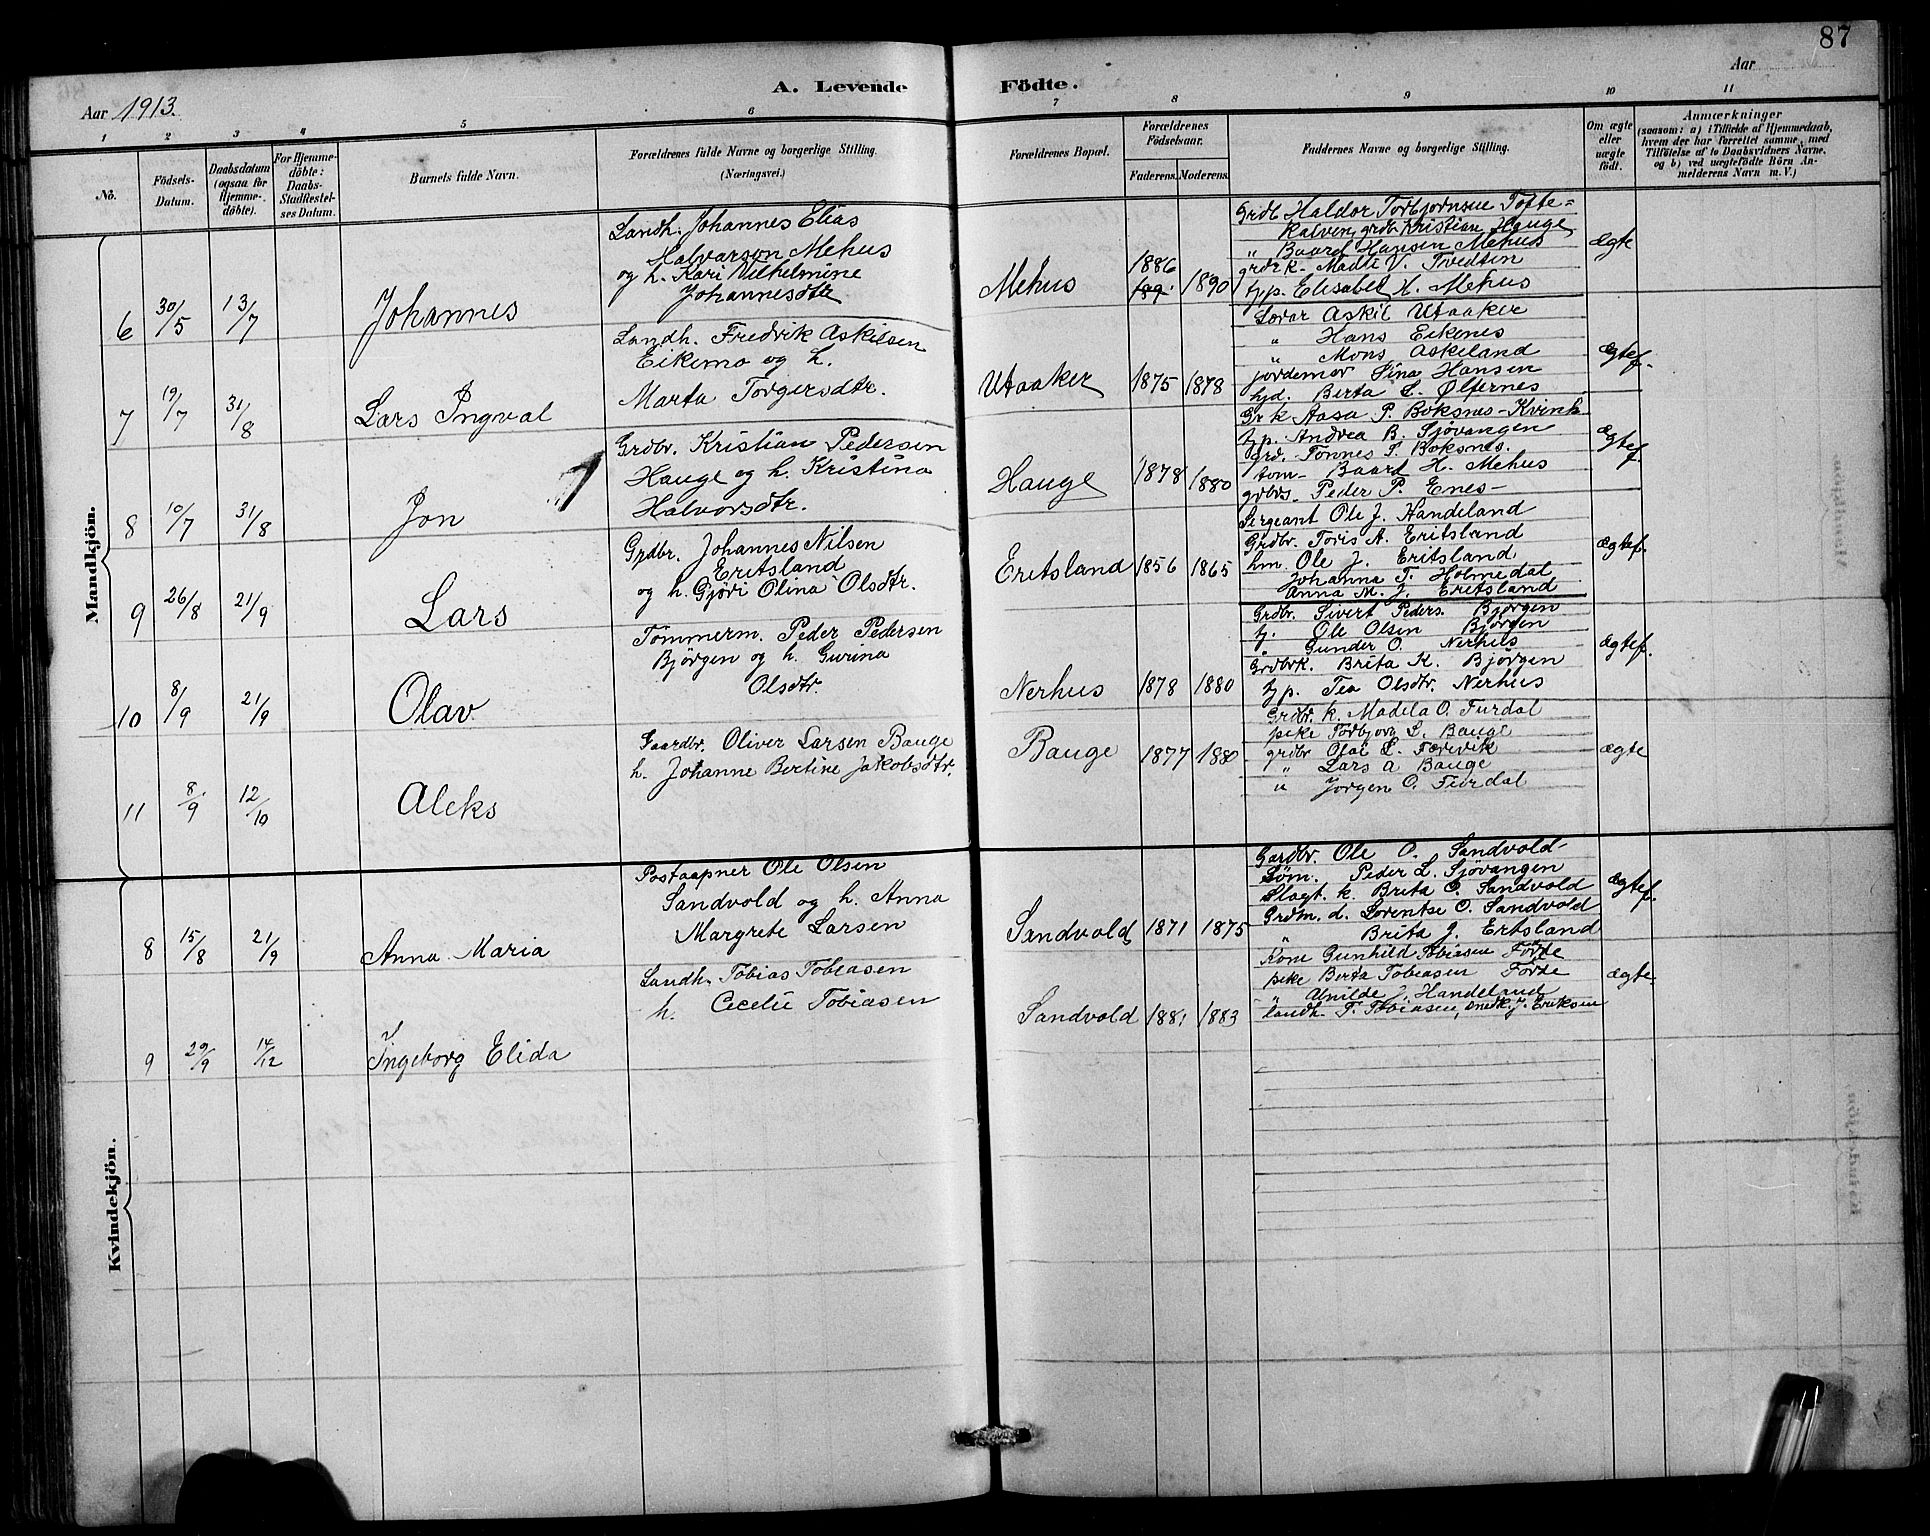 87
A. Levende Födte.
Aar 1913.
Aar
1 2 3 4 5 6 7 8 9 10 11
No.
Födsels-Datum.
Daabsdatum (ogsaa for Hjemme-döbte).
For Hjemme-döbte: Daabs-Stadfæstel-ses Datum.
Barnets fulde Navn.
Forældrenes fulde Navne og borgerlige Stilling.
(Næringsvei.)
Forældrenes Bopæl.
Forældrenes Födselsaar.
Faderens. Moderens.
Faddernes Navne og borgerlige Stilling.
Om ægte eller uægte født.
Anmærkninger
(saasom: a) i Tilfælde af Hjemmedaab, hvem der har forrettet samme, med Tilföielse af to Daabsvidners Navne, og b) ved uægtefödte Börn An-melderens Navn m. V.)
Mandkjön.
6 30/5 13/7 Johannes
Landh. Johannes Elias
Halvarson Mehus
og h. Kari Vilhelmine
Johannesdtr
Mehus 1886 189. 1890
Grdb. Haldor Torbjørnsen Tofte-
Kalven, grdb. Kristian Hauge
" Baard Hansen Mehus
grdbrk. Madli V. Tvedten
tjp. Elisabet H. Mehus
Ægte
7 19/7 31/8 Lars Ingval
Landh. Fredrik Askilsen
Eikemo og h.
Marta Torgersdtr.
Utaaker 1875 1878
Lodar Askil Utaaker
" Hans Eikenes
" Mons Askeland
jordemor Sina Hansen
hjd. Berta L. Ølfernes
Ægtef.
8 10/7 31/8 Jon
Grdbr. Kristian Pedersen
Hauge og h. Kristina
Halvorsdtr.
Hauge 1878 1880
Gr k Aasa P. Boksnes-Kvinh
tjp. Andrea B. Sjøvangen
grd. Tönnes T. Boksnes.
töm- Baard H. Mehus
grdbrs. Peder P. Enes-
Ægtef.
9 26/8 21/9 Lars
Grdbr. Johannes Nilsen
Eritsland
og h. Gjöri Olina Olsdtr.
Eritsland 1856 1865
Sergeant Ole J. Handeland
Grdbr. Toris A. Eritsland
hm. Ole J. Eritsland
Johanna T. Holmedal
Anna M. J. Eritsland
Ægtef.
10 8/9 21/9 Olav
Tömmerm. Peder Pedersen
Björgen og h. Gurina
Olsdtr.
Nerhus 1878 1880
Grdbr. Sivert Peders. Bjørgen
tj. Ole Olsen Bjørgen
" Gunder O. Nerhus
Grdbrk. Brita K. Bjørgen
tjp. Tea Olsdtr. Nerhus
ægtef.
11 8/9 12/10 Aleks
Gaardbr. Oliver Larsen Bauge
h. Johanne Bertine Jakobsdtr.
Bauge 1877 1880
Grdbr. k. Madela O. Furdal
pike Torbjorg L. Bauge
grdbr Olai L. Færevik
" Lars A Bauge
" Jorgen O. Furdal
ægte
Kvindekjön.
8 15/8 21/9 Anna Maria
Postaapner Ole Olsen
Sandvold og h. Anna
Margrete Larsen
Sandvold 1871 1875
Gardbr. Ole O. Sandvold-
Söm. Peder L. Sjövangen
Slagt. k. Brita O. Sandvold
Grdm. d. Lorentse O. Sandvold
" Brita J. Ertsland
ægtef.
9 29/9 14/12 Ingeborg Elida
Landh. Tobias Tobiasen
h. Cecelie Tobiasen
Sandvold 1881 1883
Kone Gunhild Tobiasen Förde
pike Berta Tobiasen Förde
" Alnilde J. Handeland
landh. T. Tobiasen, snedk. J. Eriksen
ægte